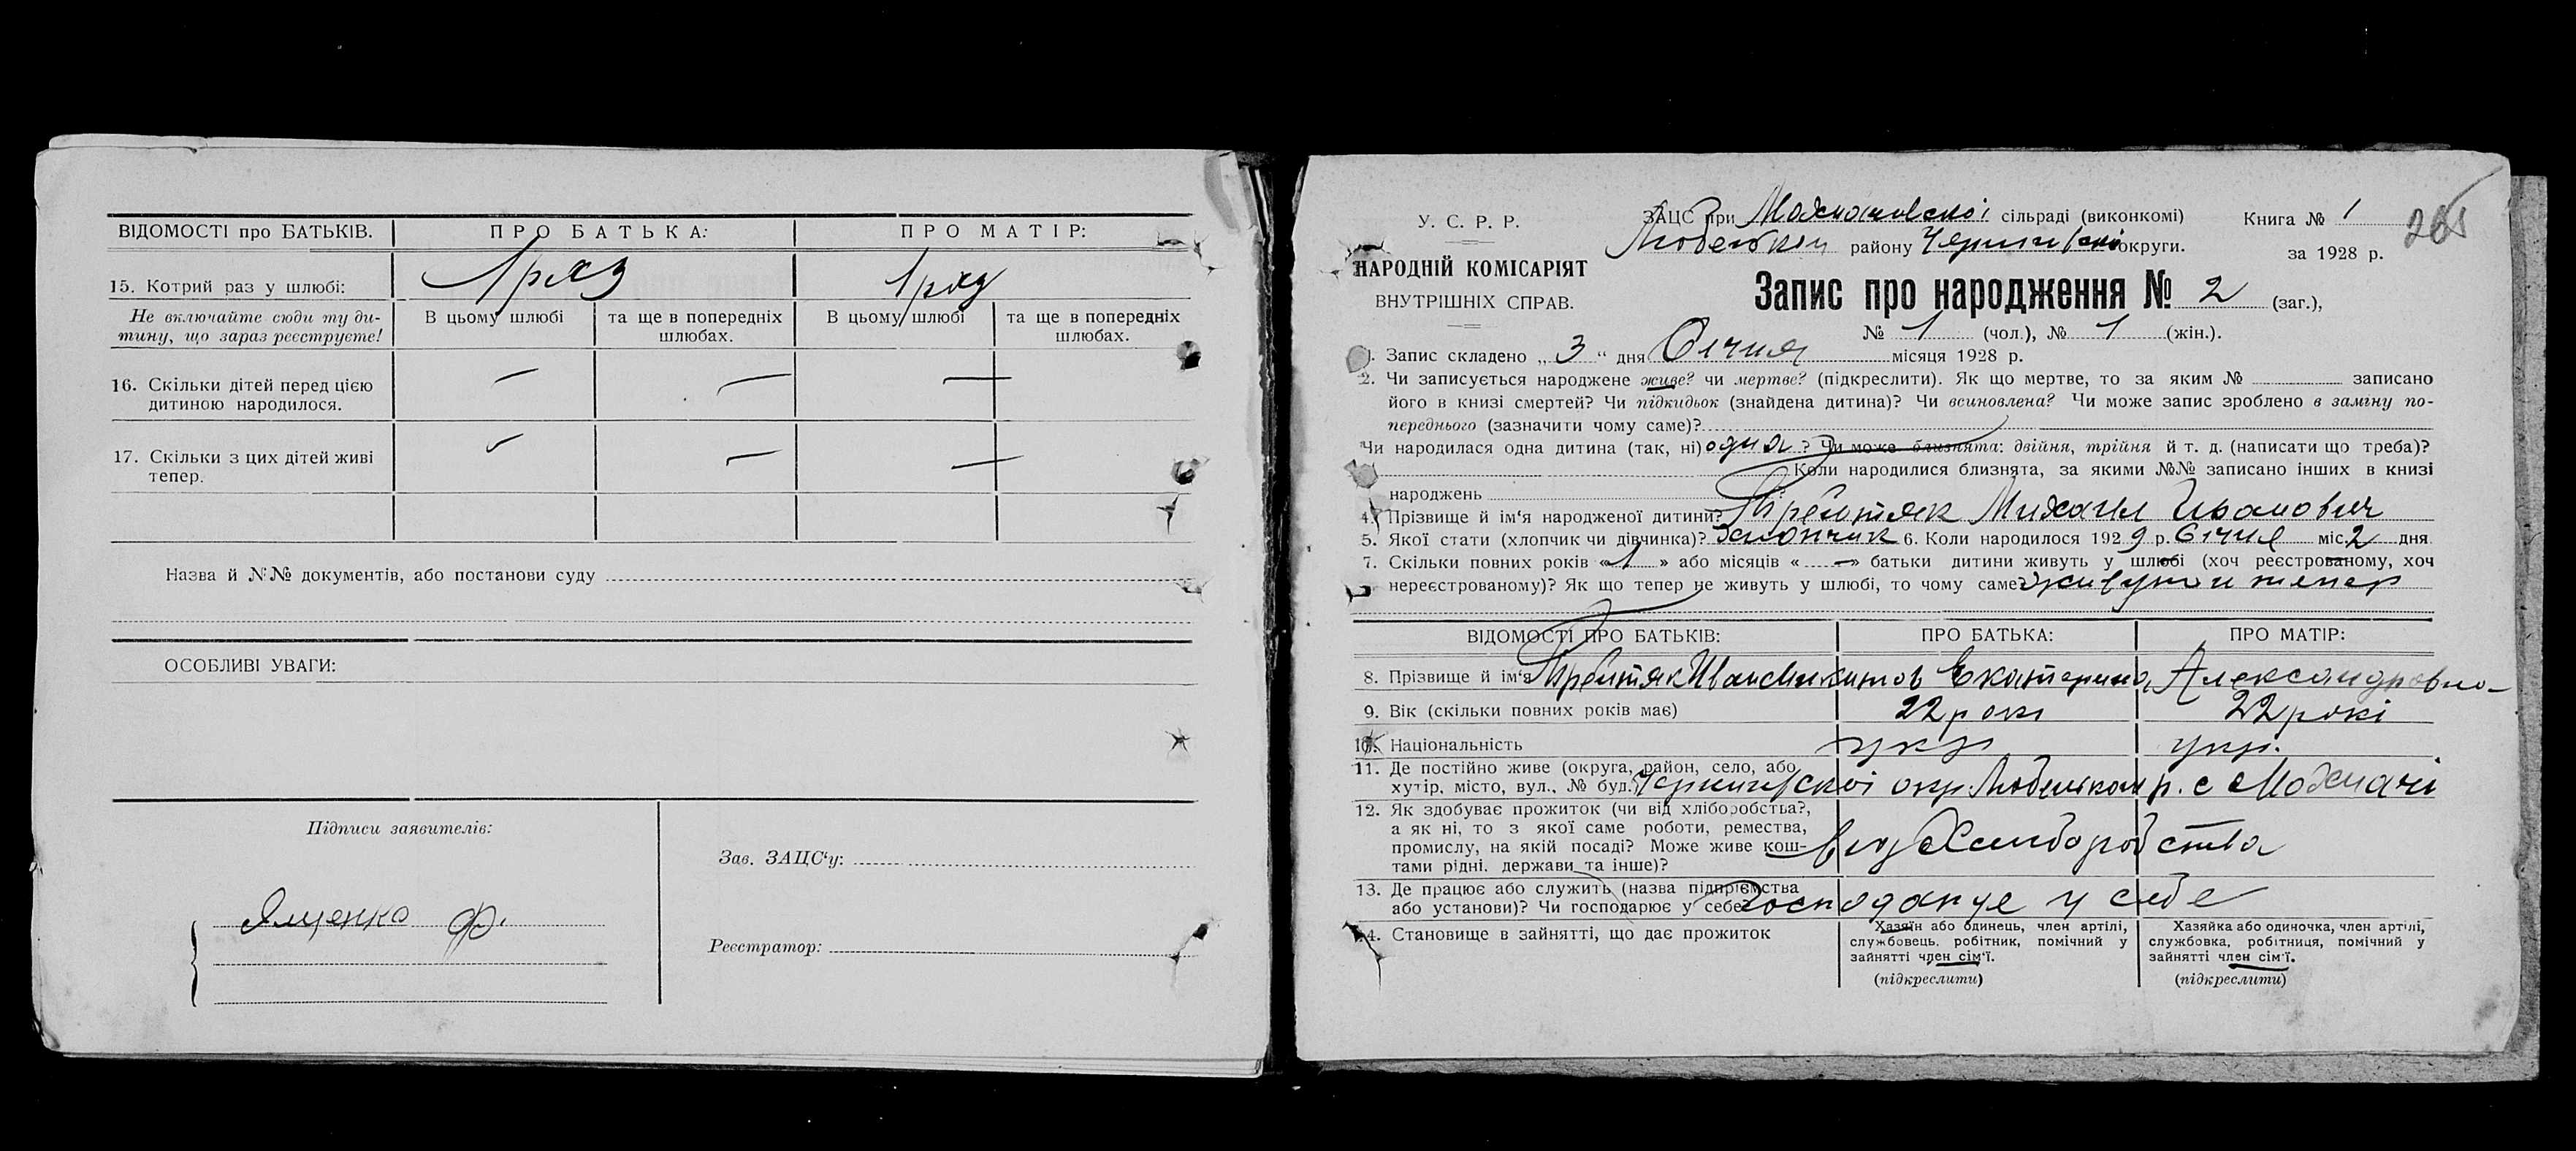 ВІДОМОСТІ про БАТЬКІВ. ПРО БАТЬКА: ПРО МАТІР:
15. Котрий раз у шлюбі: 1 раз 1 раз
Не включайте сюди ту ди- В цьому шлюбі та ще в попередніх В цьому шлюбі та ще в попередніх
тину, що зараз реєструєте! шлюбах. шлюбах.
16. Скільки дітей перед цією — — —
дитиною народилося.
17. Скільки з цих дітей живі — — —
тепер.
Назва й №№ документів, або постанови суду
ОСОБЛИВІ УВАГИ:
Підписи заявителів:
Зав. ЗАЦС‘у:
Ященко Ф.
Реєстратор:
У. С. Р. Р. ЗАЦС при сільраді (виконкомі) Книга № 1 265
Любецком району округи.
за 1928 р.
НАРОДНІЙ КОМІСАРІЯТ
ВНУТРІШНІХ СПРАВ.
Запис про народження № 2 (заг.),
№ 1 (чол.), № 1 (жін.).
1. Запис складено „ 3 “ дня Січня місяця 1928 р.
2. Чи записується народжене живе? чи мертве? (підкреслити). Як що мертве, то за яким № записано
його в книзі смертей? Чи підкидьок (знайдена дитина)? Чи всиновлена? Чи може запис зроблено в заміну по-
переднього (зазначити чому саме)?
Чи народилася одна дитина (так, ні) одна ? Чи може близнята: двійня, трійня й т. д. (написати що треба)?
Коли народилися близнята, за якими №№ записано інших в книзі
народжень
4. Прізвище й ім‘я народженої дитини? Михаил Иванович
5. Якої стати (хлопчик чи дівчинка)? Хлопчик 6. Коли народилося 1929 р. Січня міс. 2 дня
7. Скільки повних років « 1 » або місяців « — » батьки дитини живуть у шлюбі (хоч реєстрованому, хоч
нереєстрованому)? Як що тепер не живуть у шлюбі, то чому саме? живуть и тепер
ВІДОМОСТІ ПРО БАТЬКІВ: ПРО БАТЬКА: ПРО МАТІР:
8. Прізвище й ім‘я Иван Никитов Екатерина Александровно
9. Вік (скільки повних років має) 22 рокі 22 рокі
10. Національність укр укр.
11. Де постійно живе (округа, район, село, або
хутір, місто, вул., № буд.) окр. р. с Мохначі
12. Як здобуває прожиток (чи від хліборобства?,
а як ні, то з якої саме роботи, ремества,
промислу, на якій посаді? Може живе кош-
тами рідні, держави та інше)? вид Хлиборобства
13. Де працює або служить (назва підприємства
або установи)? Чи господарює у себе? у себе
14. Становище в зайнятті, що дає прожиток Хазяїн або одинець, член артілі, Хазяйка або одиночка, член артілі,
службовець, робітник, помічний у службовка, робітниця, помічний у
зайнятті член сім‘ї. зайнятті член сім‘ї.
(підкреслити) (підкреслити)